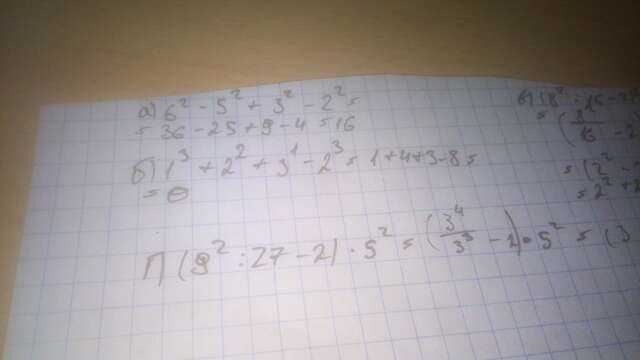 а) 6² - 5² + 3² - 2² =
= 36 - 25 + 9 - 4 = 16
б) 1³ + 2² + 3¹ - 2³ = 1+4+3-8 =
= 0
в) (8² : 16 - 2
= (8²/16 - 2
= (2² -
= 2² +
Г) (9² : 27 - 2) · 5² = (3⁴/3³ - 2) · 5² = (3